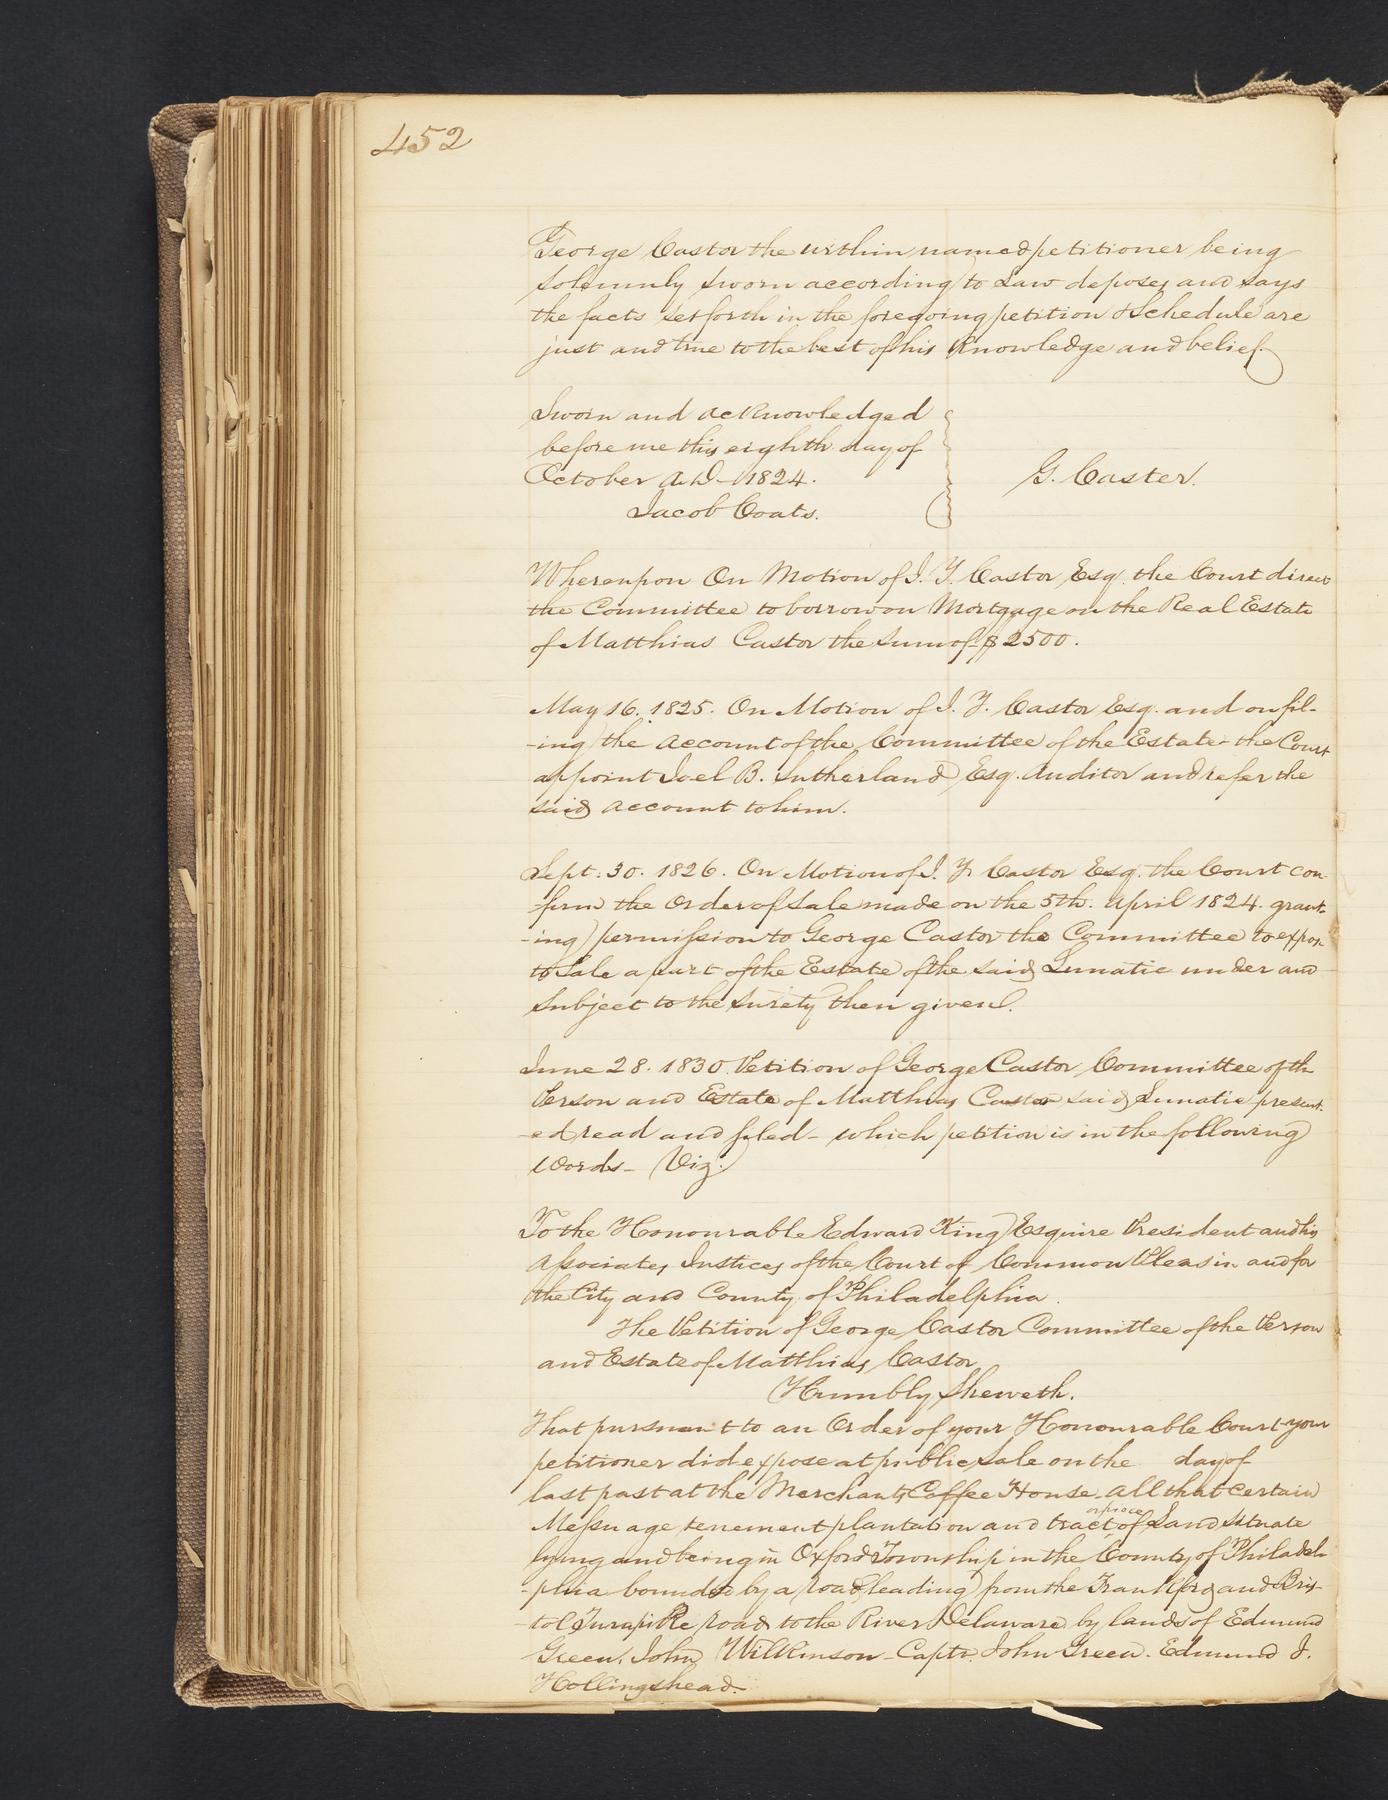 452
George Castor the within named petitioner being
solemnly sworn according to Law deposes and says
the facts set forth in the foregoing petition & Schedule are
just and true to the best of his Knowledge and belief.
Sworn and acknowledged
before me this eighth day of
October A.D. 1824.
Jacob Coats.
G. Caster.
Whereupon On Motion of J. Y. Castor Esq. the Court direct
the Committee to borrow on Mortgage on the Real Estate
of Matthias Castor the sum of $2500.
May 16. 1825. On Motion of J. Y. Castor Esq. and on fil-
-ing the account of the Committee of the Estate - the Court
appoint Joel B. Sutherland Esq. Auditor and refer the
said account to him.
Sept. 30. 1826. On Motion of J. Y. Castor Esq. the Court con-
-firm the Order of Sale made on the 5th. April 1824 grant-
-ing permission to George Castor the Committee to expose
to Sale a part of the Estate of the said Lunatic under and
subject to the surety then given.
June 28. 1830 Petition of George Castor Committee of the
Person and Estate of Matthias Castor said Lunatic present-
-ed read and filed - which petition is in the following
words - Viz.
To the Honourable Edward King Esquire President and his
associates Justices of the Court of Common Pleas in and for
the City and County of Philadelphia.
The Petition of George Castor Committee of the Person
and Estate of Matthias Castor
Humbly Sheweth.
That pursuant to an Order of your Honourable Court your
petitioner did expose at public sale on the day of
last past at the Merchants Coffee House all that certain
Messuage tenement plantation and tract or piece of Land situate
lying and being in Oxford Township in the County of Philadel-
-phia bounded by a road leading from the Frankford and Bris-
-tol Turnpike road to the River Delaware by lands of Edmund
Green, John Wilkinson - Capt. John Green. Edmund J.
Hollingshead.